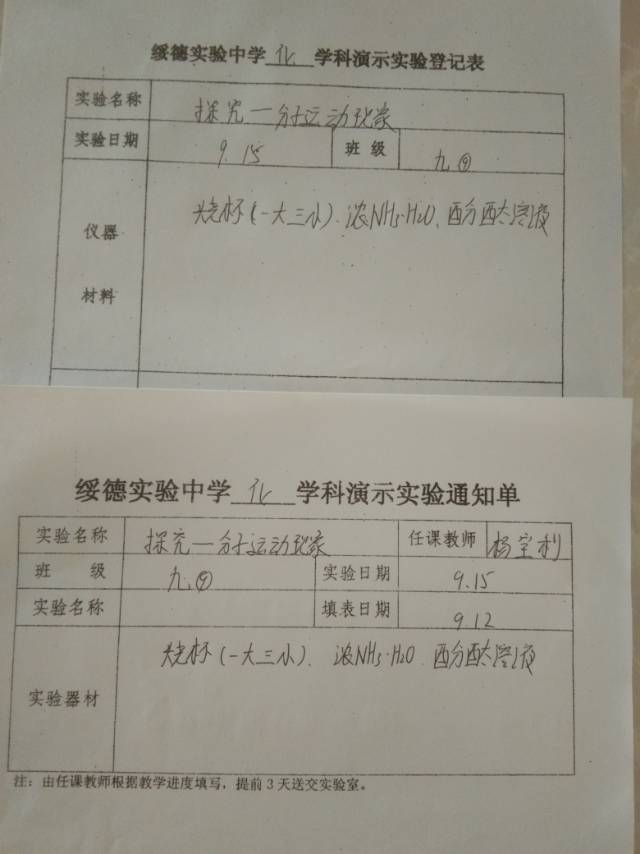 绥德实验中学 化 学科演示实验登记表
实验名称 探究一分子运动现象
实验日期 9.15 班 级 九.④
仪器 烧杯(一大三小).浓NH₃·H₂O、酚酞溶液
材料
绥德实验中学 化 学科演示实验通知单
实验名称 探究一分子运动现象 任课教师 杨宝利
班 级 九.④ 实验日期 9.15
实验名称 填表日期 9.12
实验器材 烧杯(一大三小). 浓NH₃·H₂O. 酚酞溶液
注:由任课教师根据教学进度填写,提前3天送交实验室。